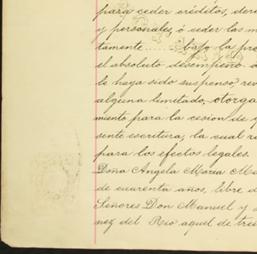 para ceder créditos, dere
y personales, ó ceder las m
tamente bajo la pre
el absoluto desempeño d
le haya sido suspenso, rev
alguna limitado, otorga
miento para la cesion de
sente escritura, la cual ra
para los efectos legales.
Doña Angela Maria Ma
de cuarenta años, libre d
Señores Don Manuel y
nez del Rio aquel de trei